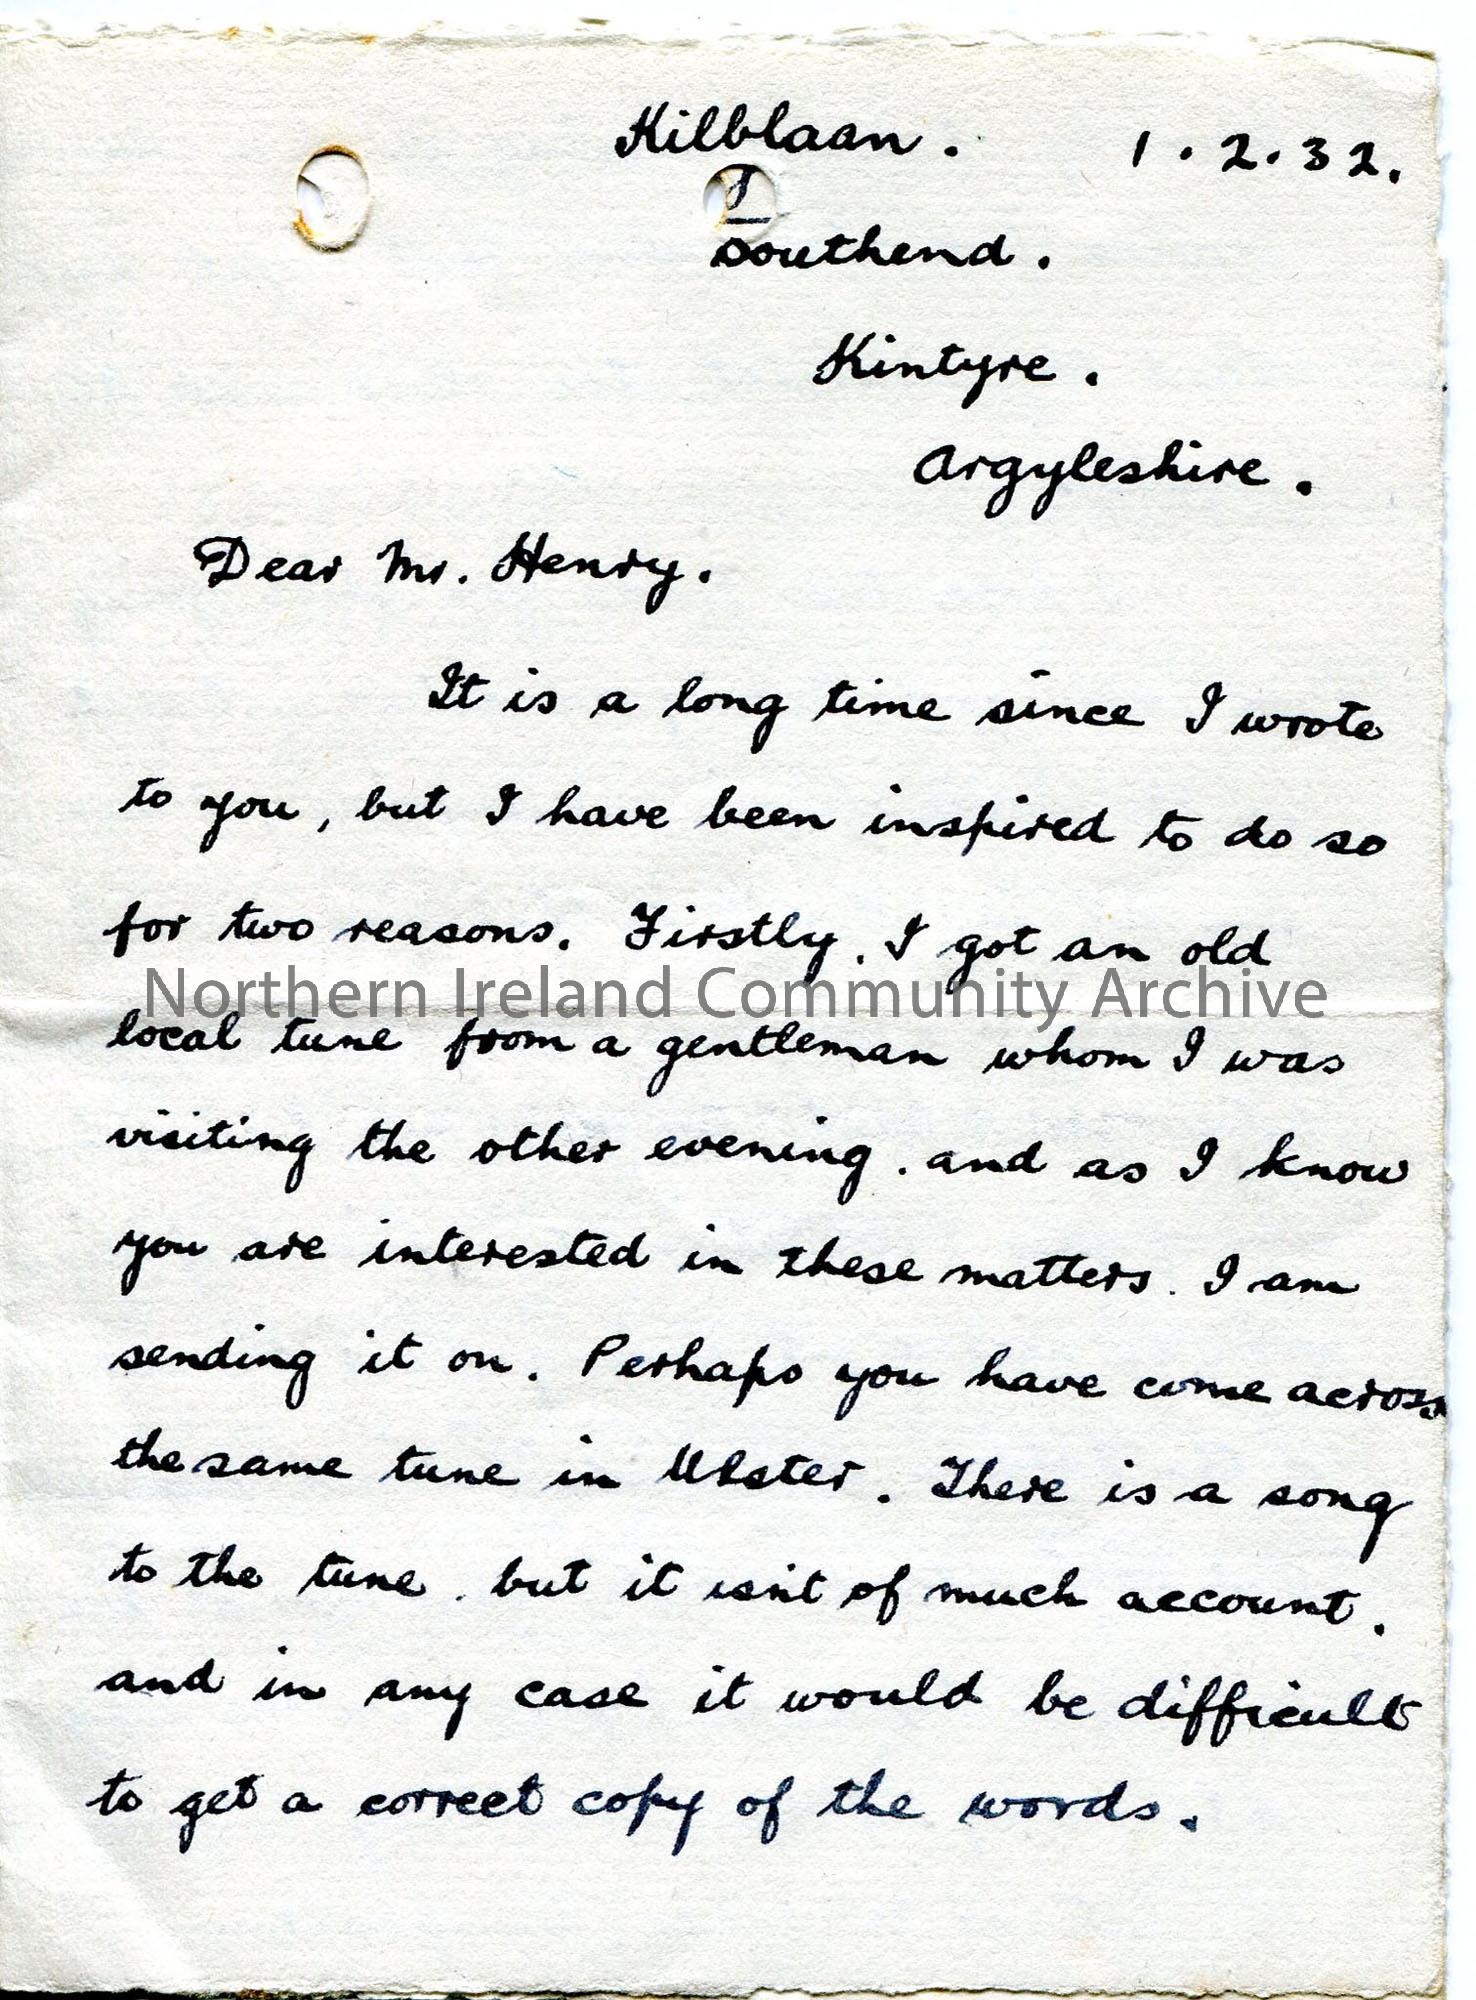 Kilblaan. 1.2.32.
Southend.
Kintyre.
Argyleshire.
Dear Mr. Henry.
It is a long time since I wrote
to you, but I have been inspired to do so
for two reasons. Firstly, I got an old
Northern Ireland Community Archive
local tune from a gentleman whom I was
visiting the other evening. and as I know
you are interested in these matters. I am
sending it on. Perhaps you have come across
the same tune in Ulster. There is a song
to the tune. but it isn't of much account.
and in any case it would be difficult
to get a correct copy of the words.